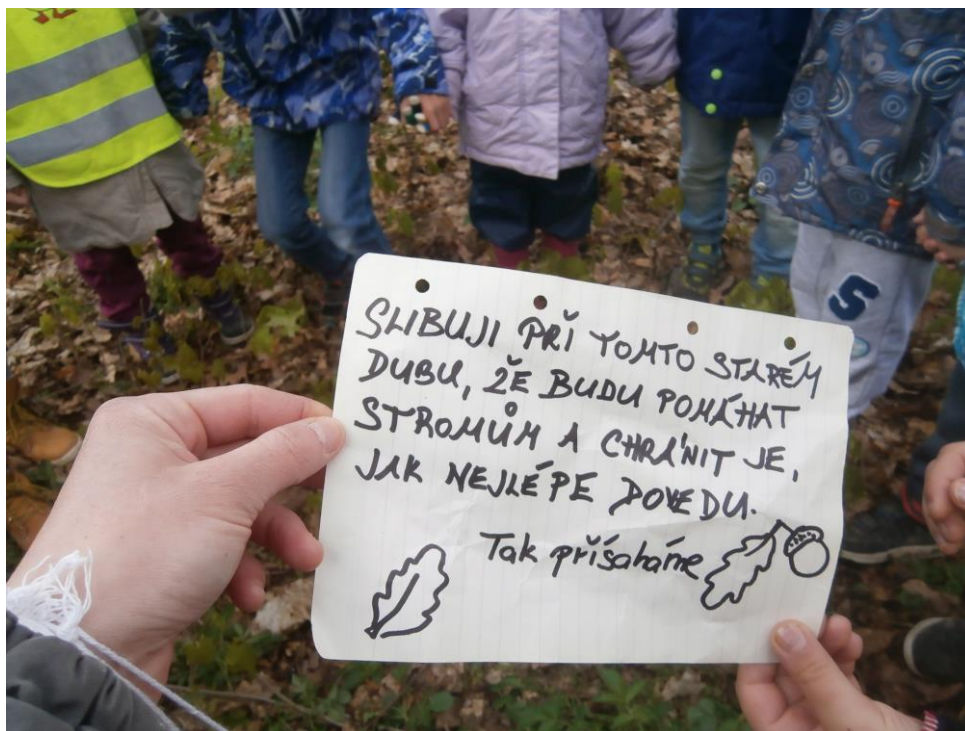 SLIBUJI PŘI TOMTO STARÉM
DUBU, ŽE BUDU POMÁHAT
STROMŮM A CHRÁNIT JE,
JAK NEJLÉPE DOVEDU.
Tak přísaháme
5